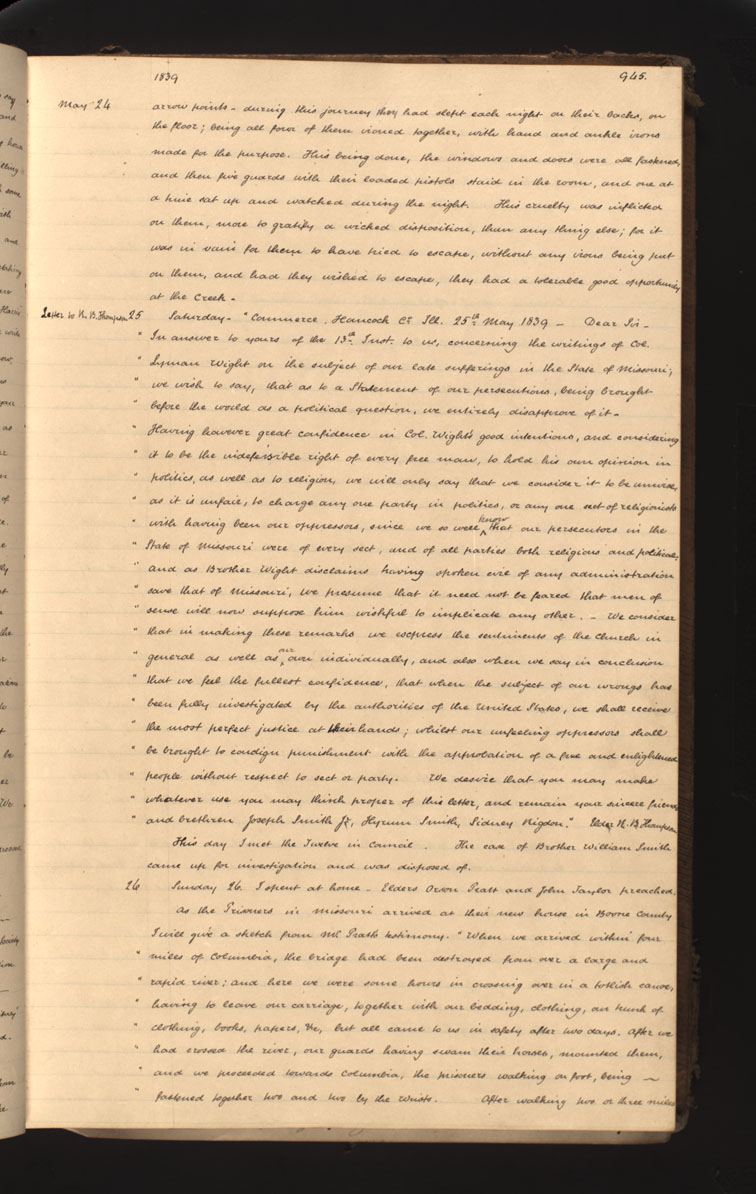 1839 945.
May 24 arrow points - during this journey they had slept each night on their backs, on
the floor; being all four of them ironed together, with hand and ankle irons
made for the purpose. This being done, the windows and doors were all fastened,
and then five guards with their loaded pistols staid in the room, and one at
a time sat up and watched during the night. This cruelty was inflicted
on them, more to gratify a wicked disposition, than any thing else; for it
was in vain for them to have tried to escape, without any irons being put
on them, and had they wished to escape, they had a tolerable good opportunity
at the Creek -
Letter to R. B. Thompson 25 Saturday - " Commerce, Hancock Co. Ill. 25th May 1839 - Dear Sir -
" In answer to yours of the 13th Inst. to us, concerning the writings of Col.
" Lyman Wight on the subject of our late sufferings in the State of Missouri;
" we wish to say, that as to a Statement of our persecutions, being brought
" before the world as a political question, we entirely disapprove of it -
" Having however great confidence in Col. Wight's good intentions, and considering
" it to be the indefeisible right of every free man, to hold his own opinion in
" politics, as well as to religion, we will only say that we consider it to be unwise,
" as it is unfair, to charge any one party in politics, or any one sect of religionists
" with having been our oppressors, since we so well ^know that our persecutors in the
" State of Missouri were of every sect, and of all parties both religious and political;
" and as Brother Wight disclaims having spoken evil of any administration
" save that of Missouri, we presume that it need not be feared that men of
" sense will now suppose him wishful to implicate any other. - We consider
" that in making these remarks we express the sentiments of the Church in
" general as well as ^our own individually, and also when we say in conclusion
" that we feel the fullest confidence, that when the subject of our wrongs has
" been fully investigated by the authorities of the United States, we shall receive
" the most perfect justice at their hands; whilst our unfeeling oppressors shall
" be brought to condign punishment with the approbation of a free and enlightened
" people without respect to sect or party. We desire that you may make
" whatever use you may think proper of this letter, and remain your sincere friends
" and brethren Joseph Smith Jr, Hyrum Smith, Sidney Rigdon." Elder R. B Thompson
This day I met the Twelve in Council. The case of Brother William Smith
came up for investigation and was disposed of.
26 Sunday 26. I spent at home - Elders Orson Pratt and John Taylor preached.
As the Prisoners in Missouri arrived at their new house in Boone County
I will give a sketch from Mr. Pratt's testimony. " When we arrived within four
" miles of Columbia, the bridge had been destroyed from over a large and
" rapid river; and here we were some hours in crossing over in a tottlish canoe,
" having to leave our carriage, together with our bedding, clothing, our trunk of
" clothing, books, papers, &c, but all came to us in safety after two days. After we
" had crossed the river, our guards having swam their horses, mounted them,
" and we proceeded towards Columbia, the prisoners walking on foot, being ~
" fastened together two and two by the wrists. After walking two or three miles